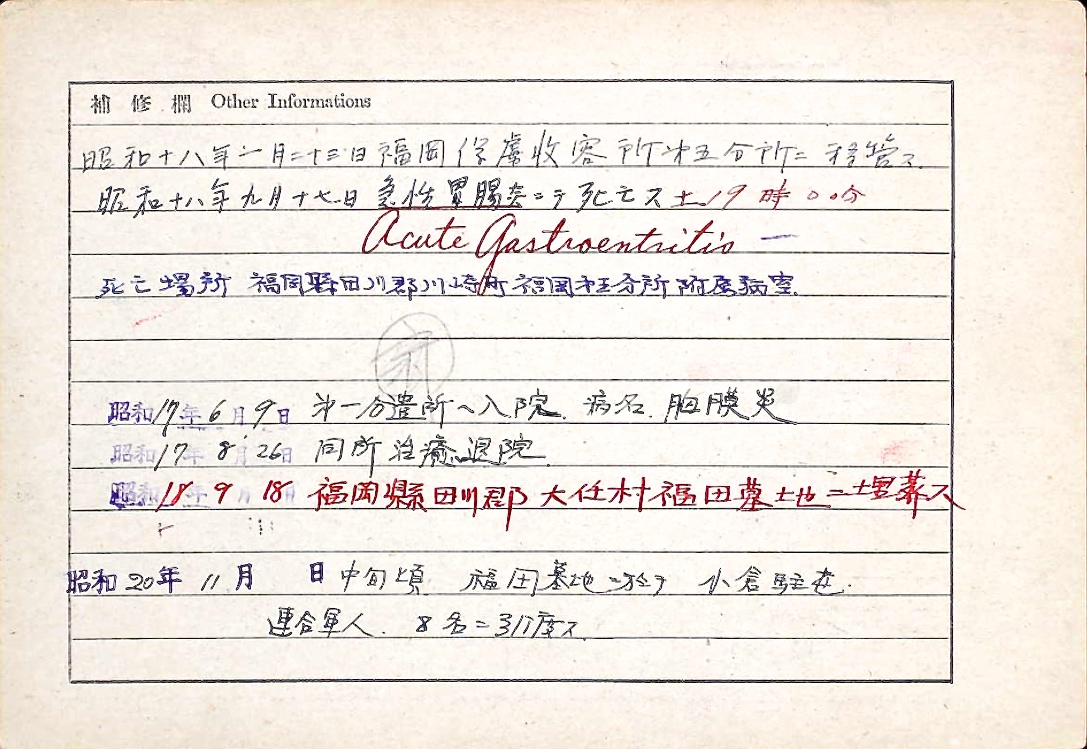 補修欄 Other Informations
昭和十八年一月二十三日福岡俘虜收容所才五分所ニ移管ス
昭和十八年九月十七日急性胃腸炎ニテ死亡ス 19時00分
Acute Gastroentritis
死亡場所 福岡縣田川郡川崎町福岡才五分所附属病室
昭和17年6月9日 才一分遣所へ入院. 病名. 胸膜炎
昭和17年8月26日 同所治癒退院
昭和18年9月18日 福岡縣田川郡大任村福田墓土地ニ埋葬ス
昭和20年11月 日中旬頃 福田墓地ニ於テ 小倉駐屯.
連合軍人. 8名ニ引渡ス